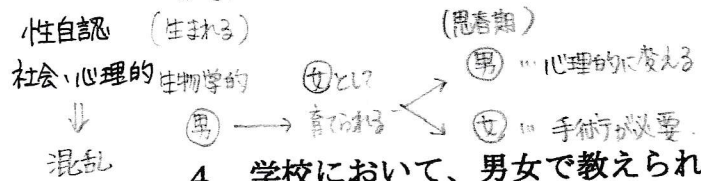 性自認 (生まれる) (思春期)
社会、心理的 生物学的 女として 男 … 心理的に変える
⇓ 男 → 育てられる 女 … 手術が必要
混乱
4 学校において、男女で教えられ